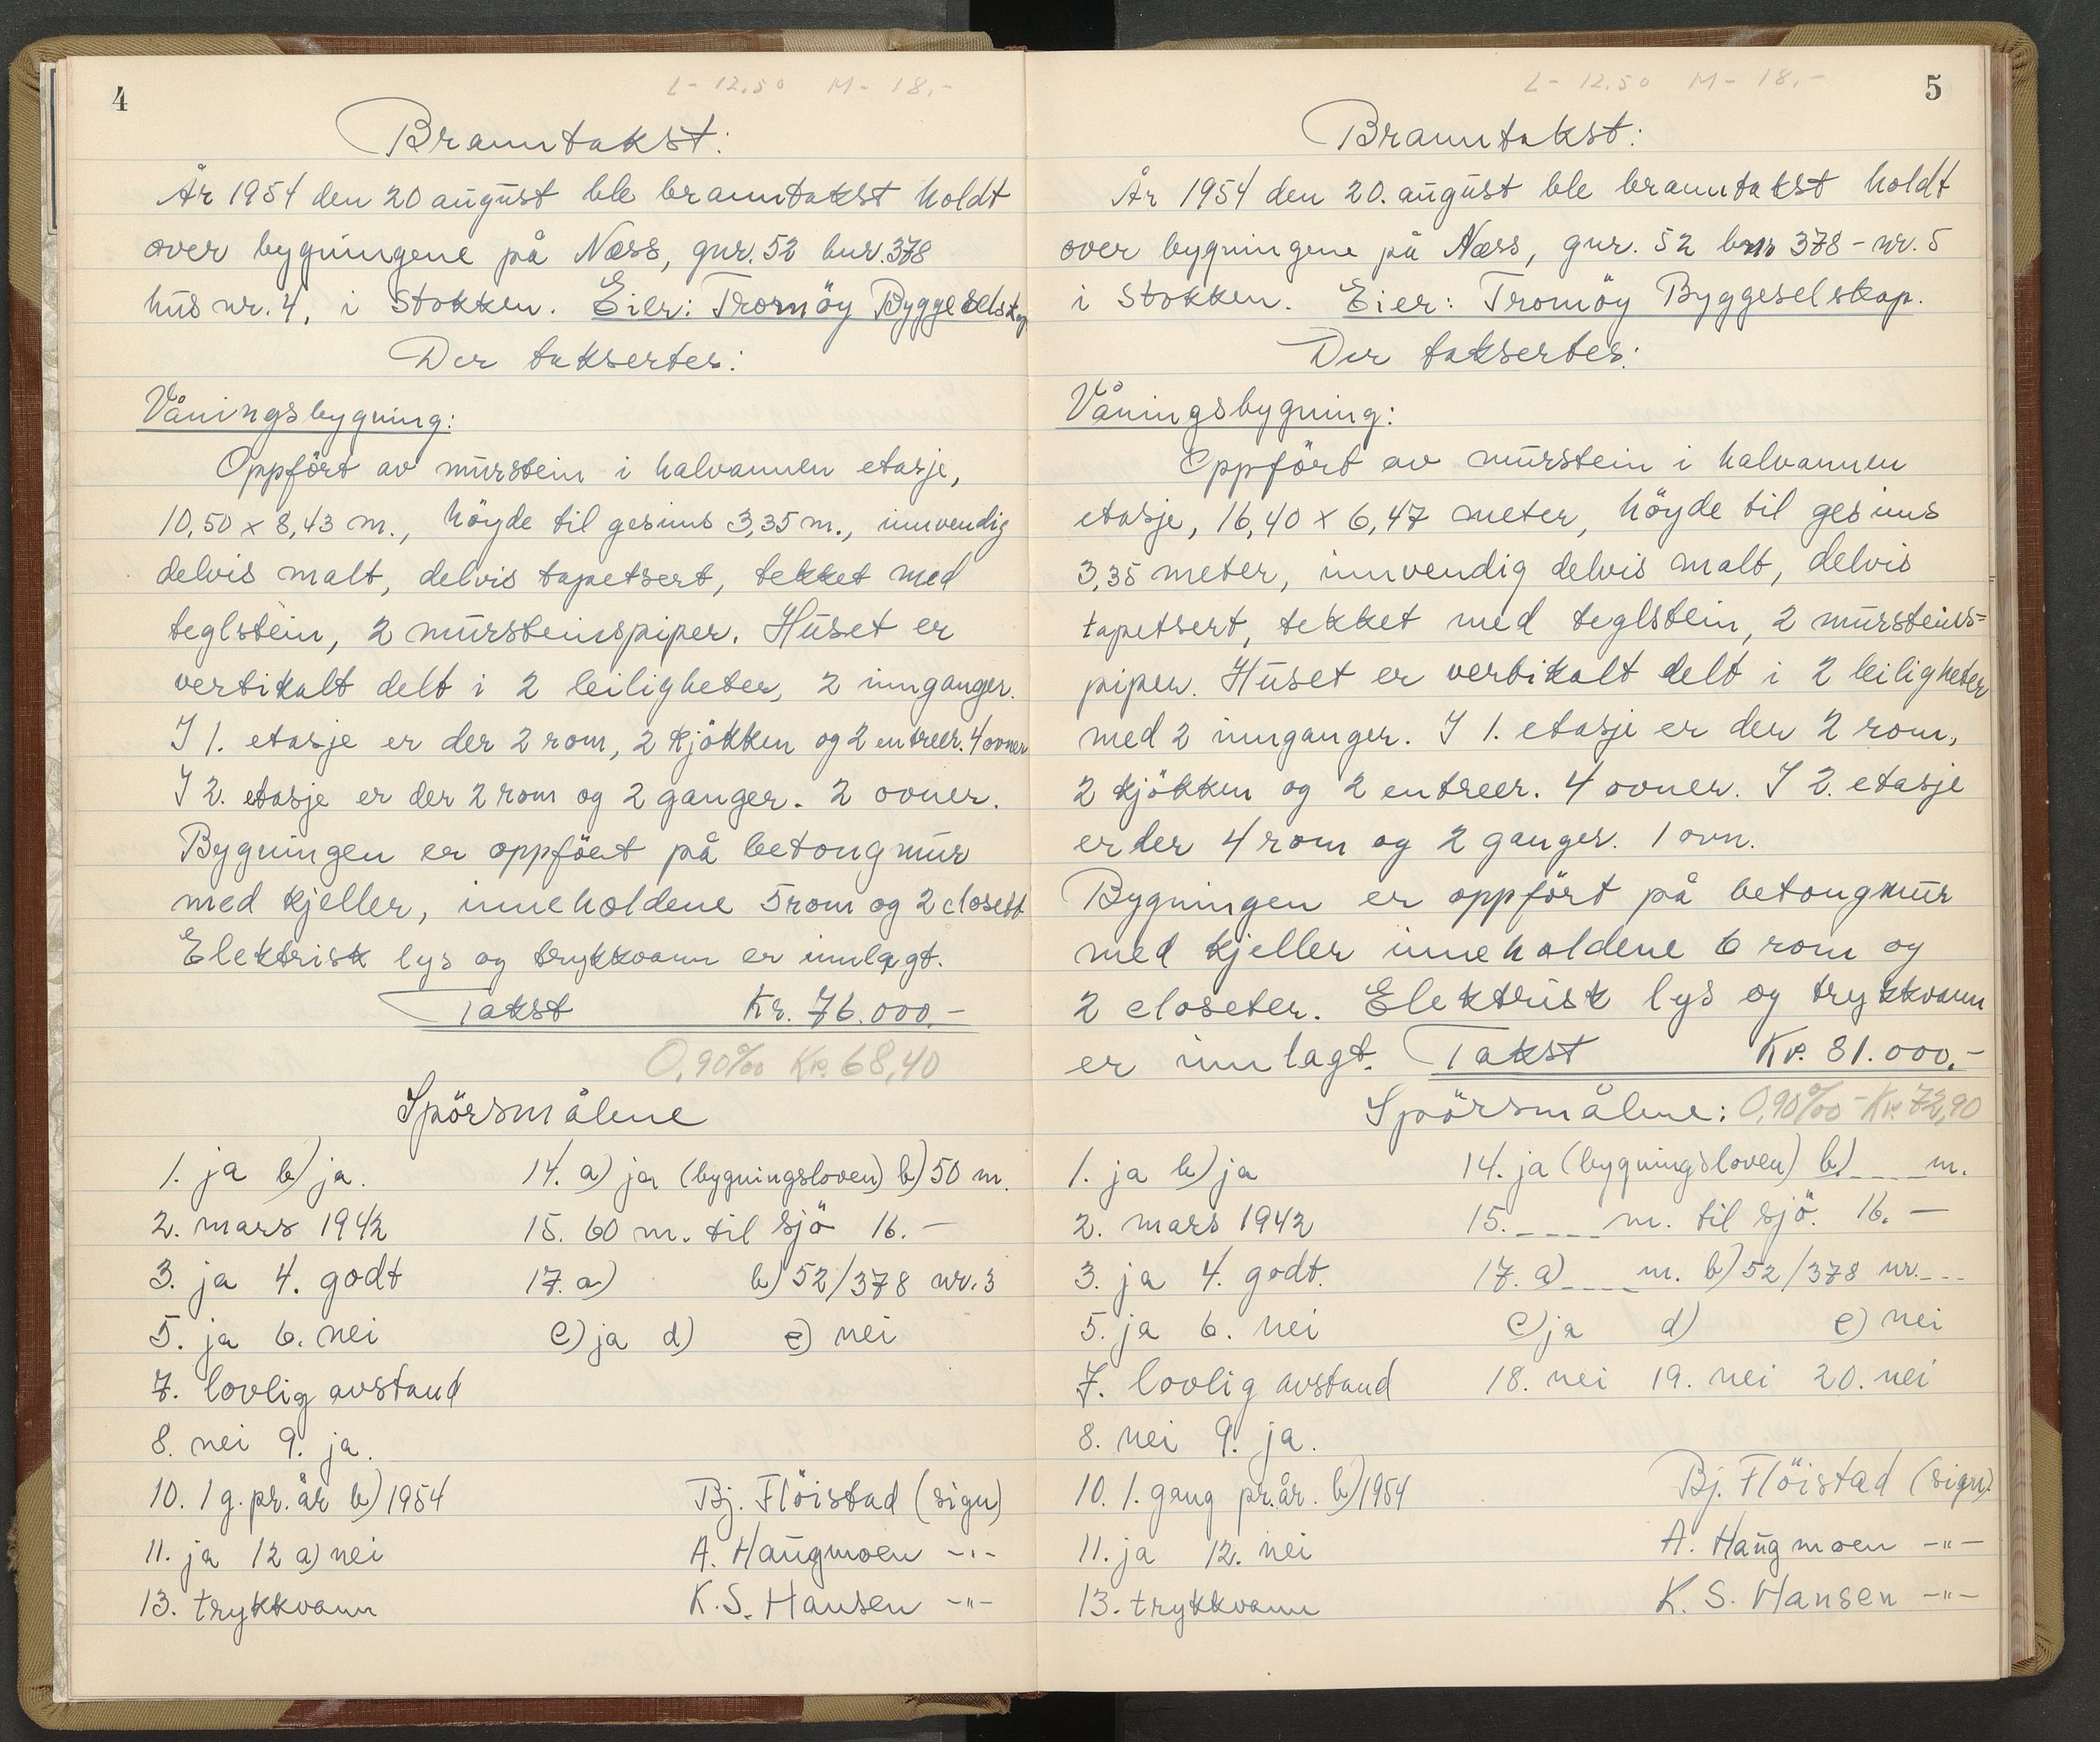 4
L- 12.50 M- 18.-
Branntakst:
År 1954 den 20 august ble branntakst holdt
over bygningene på Næss, gnr. 52 bnr. 378
hus nr. 4, i Stokken. Eier: Tromöy Byggeselskap
Der taksertes:
Våningsbygning:
Oppfört av murstein i halvannen etasje,
10,50 x 8,43 m., höyde til gesims 3,35 m., innvendig
delvis malt, delvis tapetsert, tekket med
teglstein, 2 mursteinspiper. Huset er
vertikalt delt i 2 leiligheter, 2 innganger.
I 1. etasje er der 2 rom, 2 kjökken og 2 entreer. 4 ovner
I 2. etasje er der 2 rom og 2 ganger. 2 ovner.
Bygningen er oppfört på betongmur
med kjeller, inneholdene 5 rom og 2 closett
Elektrisk lys og trykkvann er innlagt.
Takst Kr. 76.000.-
0,90‰ Kr. 68,40
Spörsmålene
1. ja b) ja. 14. a) ja (bygningsloven) b) 50 m.
2. mars 1942 15. 60 m. til sjö 16. -
3. ja 4. godt 17. a) b) 52/378 nr. 3
5. ja 6. nei c) ja d) e) nei
7. lovlig avstand
8. nei 9. ja.
10. 1 g. pr. år b) 1954 Bj. Flöistad (sign)
11. ja 12 a) nei A. Haugmoen -"-
13. trykkvann K. S. Hansen -"-
5
L- 12.50 M- 18.-
Branntakst:
År 1954 den 20. august ble branntakst holdt
over bygningene på Næss, gnr. 52 bnr 378 - nr. 5
i Stokken. Eier: Tromöy Byggeselskap.
Der taksertes:
Våningsbygning:
Oppfört av murstein i halvannen
etasje, 16,40 x 6,47 meter, höyde til gesims
3,35 meter, innvendig delvis malt, delvis
tapetsert, tekket med teglstein, 2 mursteins=
piper. Huset er vertikalt delt i 2 leiligheter
med 2 innganger. I 1. etasje er der 2 rom,
2 kjökken og 2 entreer. 4 ovner. I 2. etasje
er der 4 rom og 2 ganger. 1 ovn.
Bygningen er oppfört på betongmur
med kjeller inneholdene 6 rom og
2 closeter. Elektrisk lys og trykkvann
er innlagt. Takst Kr. 81.000.-
Spörsmålene: 0,90‰ - Kr. 72,90
1. ja b) ja 14. ja (bygningsloven) b) ____ m.
2. mars 1942 15. ____ m. til sjö. 16. -
3. ja 4. godt. 17. a) ____ m. b) 52/378 nr. ___
5. ja 6. nei c) ja d) e) nei
7. lovlig avstand 18. nei 19. nei 20. nei
8. nei 9. ja.
10. 1. gang pr. år. b) 1954 Bj. Flöistad (sign).
11. ja 12. nei A. Haugmoen -"-
13. trykkvann K. S. Hansen -"-